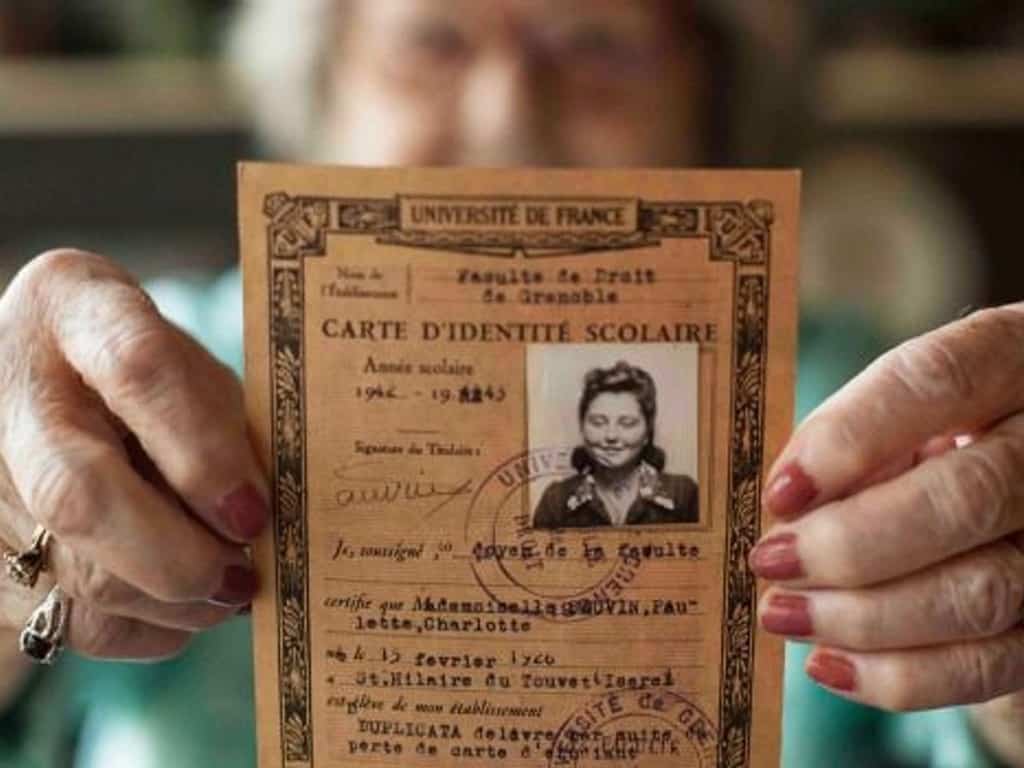 UNIVERSITÉ DE FRANCE
Nom de
l'Établissement
Faculte de Droit
de Grenoble
CARTE D'IDENTITÉ SCOLAIRE
Année scolaire
194 - 19 45
Signature du Titulaire :
Je, soussigné, doyen de la faculte
certifie que Mademoiselle Pau-
lette,Charlotte
né le 15 fevrier 1926
à St.Hilaire du Touvet(Isere)
est élève de mon établissement
DUPLICATA delivre par suite de
perte de carte d'etudiant